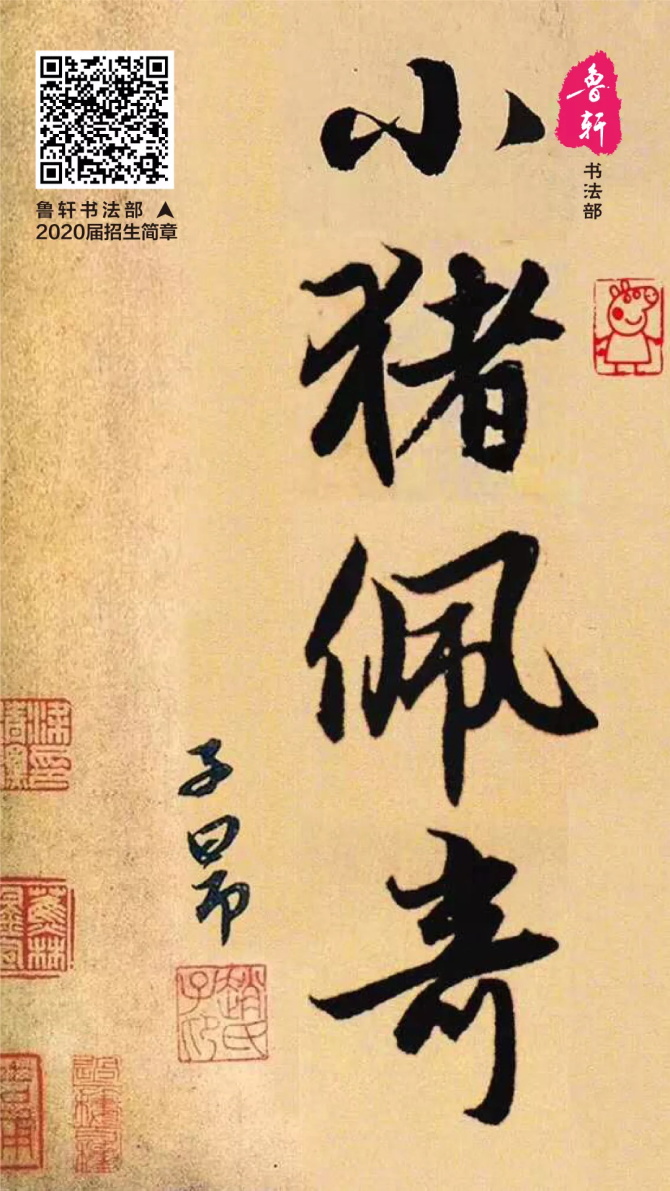 鲁轩书法部
2020届招生简章
鲁轩
书法部
小猪佩奇
子昂
趙氏子印